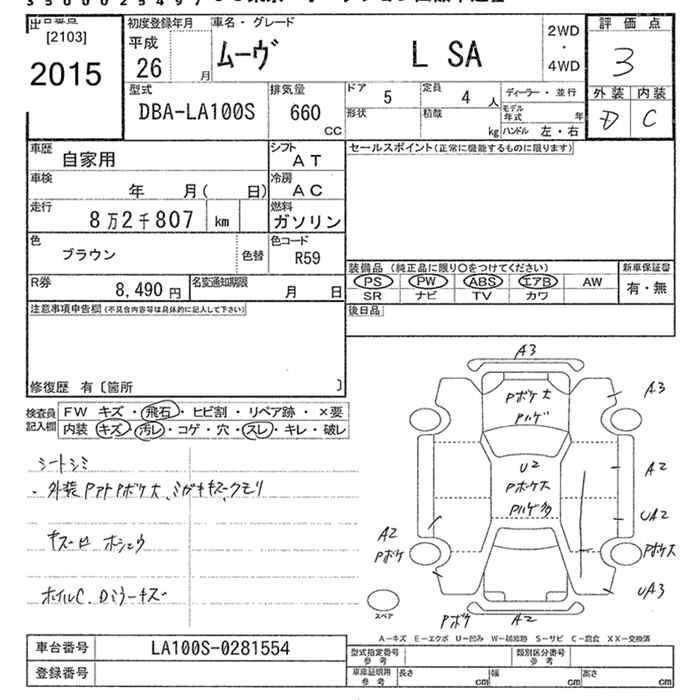 出品番号
[2103]
2015
初度登録年月
平成
26 月
車名・グレード
ムーヴ L SA
2WD
・
4WD
評価点
3
外装 内装
D C
型式
DBA-LA100S
排気量
660
CC
ドア
5
定員
4 人
ディーラー・並行
形状
積載
kg
モデル年式 年
ハンドル 左・右
車歴
自家用
シフト
AT
車検
年 月( 日)
冷房
AC
走行
8万2千807 km
燃料
ガソリン
色
ブラウン
色替
色コード
R59
R券
8,490 円
名変通知期限
月 日
セールスポイント(正常に機能するものに限ります)
装備品 (純正品に限り○をつけてください)
新車保証書
PS PW ABS エアB AW
SR ナビ TV カワ
有・無
後日品
注意事項申告欄(不具合内容等は具体的に記入して下さい)
修復歴 有〔箇所 〕
検査員
記入欄
FW キズ・飛石・ヒビ割・リペア跡・×要
内装 キズ・汚レ・コゲ・穴・スレ・キレ・破レ
シートシミ
・外装PアトPボケ大、ミガキキズ、クモリ
キズ
ホイルC、Dミラーキズ
A3
Pボケ大
Pハゲ
A3
U2
Pボケ大
Pハゲ多
A2
UA2
A2
Pボケ
Pボケ大
UA3
スペア
Pボケ
A2
A-キズ E-エクボ U-凹み W-補修跡 S-サビ C-腐食 XX-交換済
車台番号
LA100S-0281554
登録番号
型式指定番号
参考
類別区分番号
参考
車庫証明用
参考
長さ cm
幅 cm
高さ cm